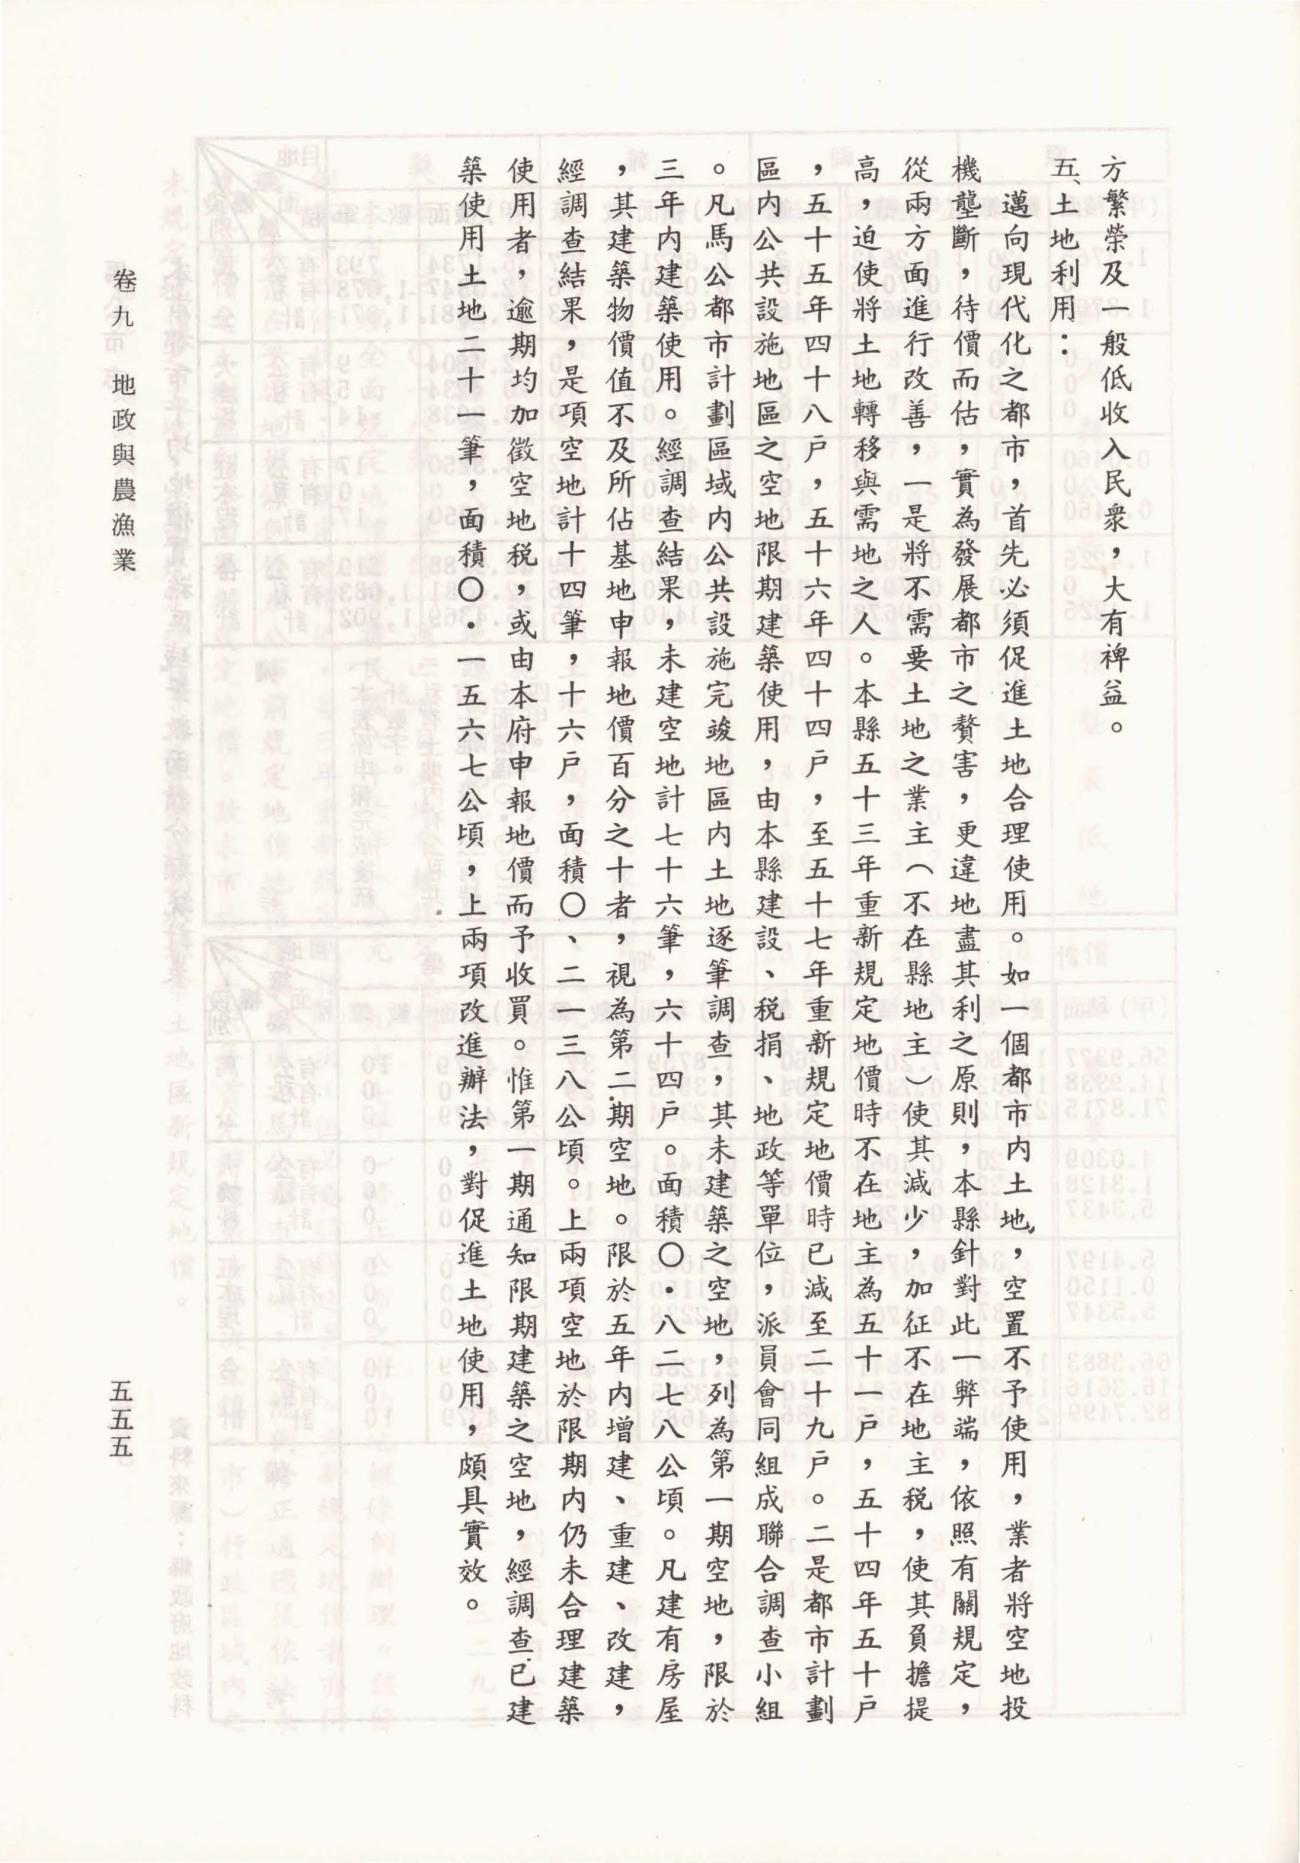 方繁榮及一般低收入民衆，大有裨益。
五、土地利用：
邁向現代化之都市，首先必須促進土地合理使用。如一個都市內土地，空置不予使用，業者將空地投
機壟斷，待價而估，實為發展都市之贅害，更違地盡其利之原則，本縣針對此一弊端，依照有關規定，
從兩方面進行改善，一是將不需要土地之業主（不在縣地主）使其減少，加征不在地主稅，使其員擔提
高，迫使將土地轉移與需地之人。本縣五十三年重新規定地價時不在地主為五十一戶，五十四年五十戶
，五十五年四十八戶，五十六年四十四戶，至五十七年重新規定地價時已減至二十九戶。二是都市計劃
區內公共設施地區之空地限期建築使用，由本縣建設、稅捐、地政等單位，派員會同組成聯合調查小組
。凡馬公都市計劃區域內公共設施完竣地區內土地逐筆調查，其未建築之空地，列為第一期空地，限於
三年內建築使用。經調查結果，未建空地計七十六筆，六十四戶。面積〇・八二七八公頃。凡建有房屋
，其建築物價值不及所佔基地申報地價百分之十者，視為第二期空地。限於五年內增建、重建、改建，
經調查結果，是項空地計十四筆，十六戶，面積〇、二一三八公頃。上兩項空地於限期內仍未合理建築
使用者，逾期均加徵空地稅，或由本府申報地價而予收買。惟第一期通知限期建築之空地，經調查已建
築使用土地二十一筆，面積〇・一五六七公頃，上兩項改進辦法，對促進土地使用，頗具實效。
卷九 地政與農漁業
五五五